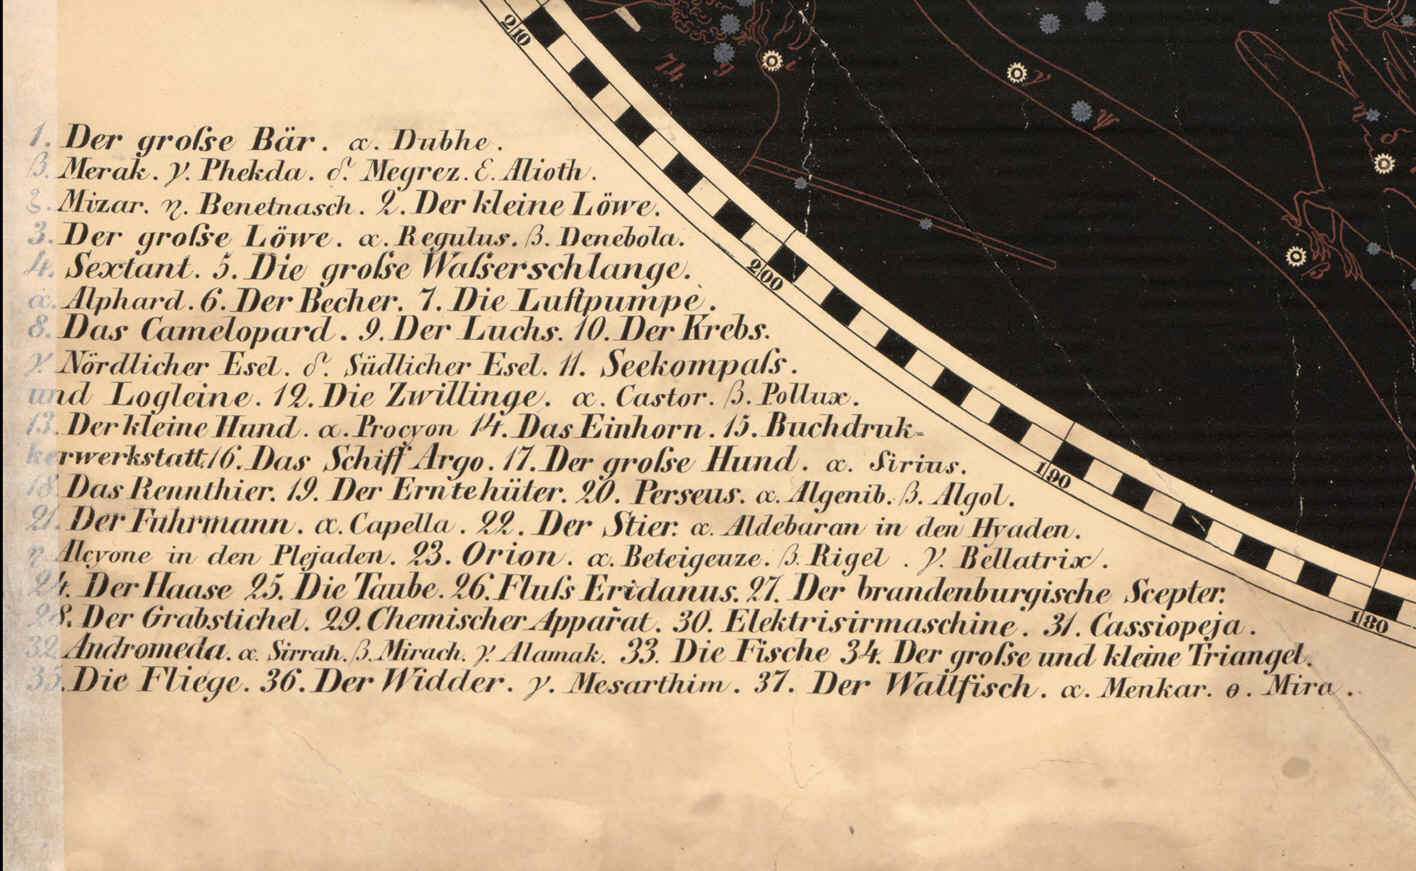 1. Der große Bär. α. Dubhe.
β. Merak. γ. Phekda. δ. Megrez. ε. Alioth.
ξ. Mizar. η. Benetnasch. 2. Der kleine Löwe.
3. Der große Löwe. α. Regulus. β. Denebola.
4. Sextant. 5. Die große Waſserschlange.
α. Alphard. 6. Der Becher. 7. Die Luftpumpe.
8. Das Camelopard. 9. Der Luchs. 10. Der Krebs.
γ. Nördlicher Esel. δ. Südlicher Esel. 11. Seekompaſs.
und Logleine. 12. Die Zwillinge. α. Castor. β. Pollux.
13. Der kleine Hund. α. Procyon 14. Das Einhorn. 15. Buchdruk-
kerwerkstatt. 16. Das Schiff Argo. 17. Der große Hund. α. Sirius.
18. Das Rennthier. 19. Der Erntehüter. 20. Perseus. α. Algenib. β. Algol.
21. Der Fuhrmann. α. Capella. 22. Der Stier. α. Aldebaran in den Hyaden.
η Alcyone in den Plejaden. 23. Orion. α. Beteigeuze. β. Rigel. γ. Bellatrix.
24. Der Haase 25. Die Taube. 26. Fluſs Eridanus. 27. Der brandenburgische Scepter.
28. Der Grabstichel. 29. Chemischer Apparat. 30. Elektrisirmaschine. 31. Cassiopeja.
32. Andromeda. α. Sirrah. β. Mirach. γ. Alamak. 33. Die Fische 34. Der große und kleine Triangel.
35. Die Fliege. 36. Der Widder. γ. Mesarthim. 37. Der Wallfisch. α. Menkar. ο. Mira.
210
200
190
180
74.
g
i
γ
β
δ